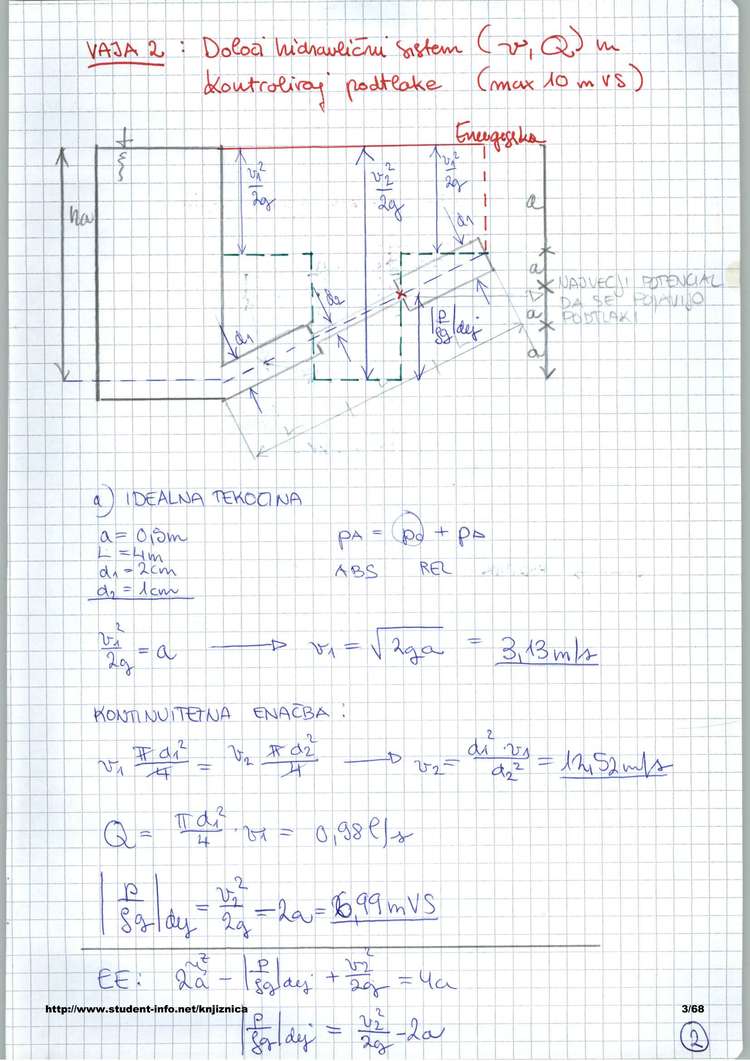 VAJA 2 : Določi hidravlični sistem (v, Q) in
kontroliraj podtlake (max 10 m VS)
Energijska
ha
v₁²/2g
v₂²/2g
v₁²/2g
d₁
a
a
NAJVEČJI POTENCIAL
DA SE POJAVIJO
PODTLAKI
a
a
d₂
d₁
|p/ρg|dej
L
a) IDEALNA TEKOČINA
a = 0,5m
L = 4m
d₁ = 2cm
d₂ = 1cm
pA = p₀ + pΔ
ABS REL
v₁²/2g = a → v₁ = √2ga = 3,13 m/s
KONTINUITETNA ENAČBA :
v₁ πd₁²/4 = v₂ πd₂²/4 → v₂ = d₁²·v₁/d₂² = 12,52 m/s
Q = πd₁²/4 · v₁ = 0,98 l/s
|p/ρg|dej = v₂²/2g - 2a = 6,99 mVS
EE: 2a - |p/ρg|dej + v₂²/2g = 4a
|p/ρg|dej = v₂²/2g - 2a
http://www.student-info.net/knjiznica
3/68
2